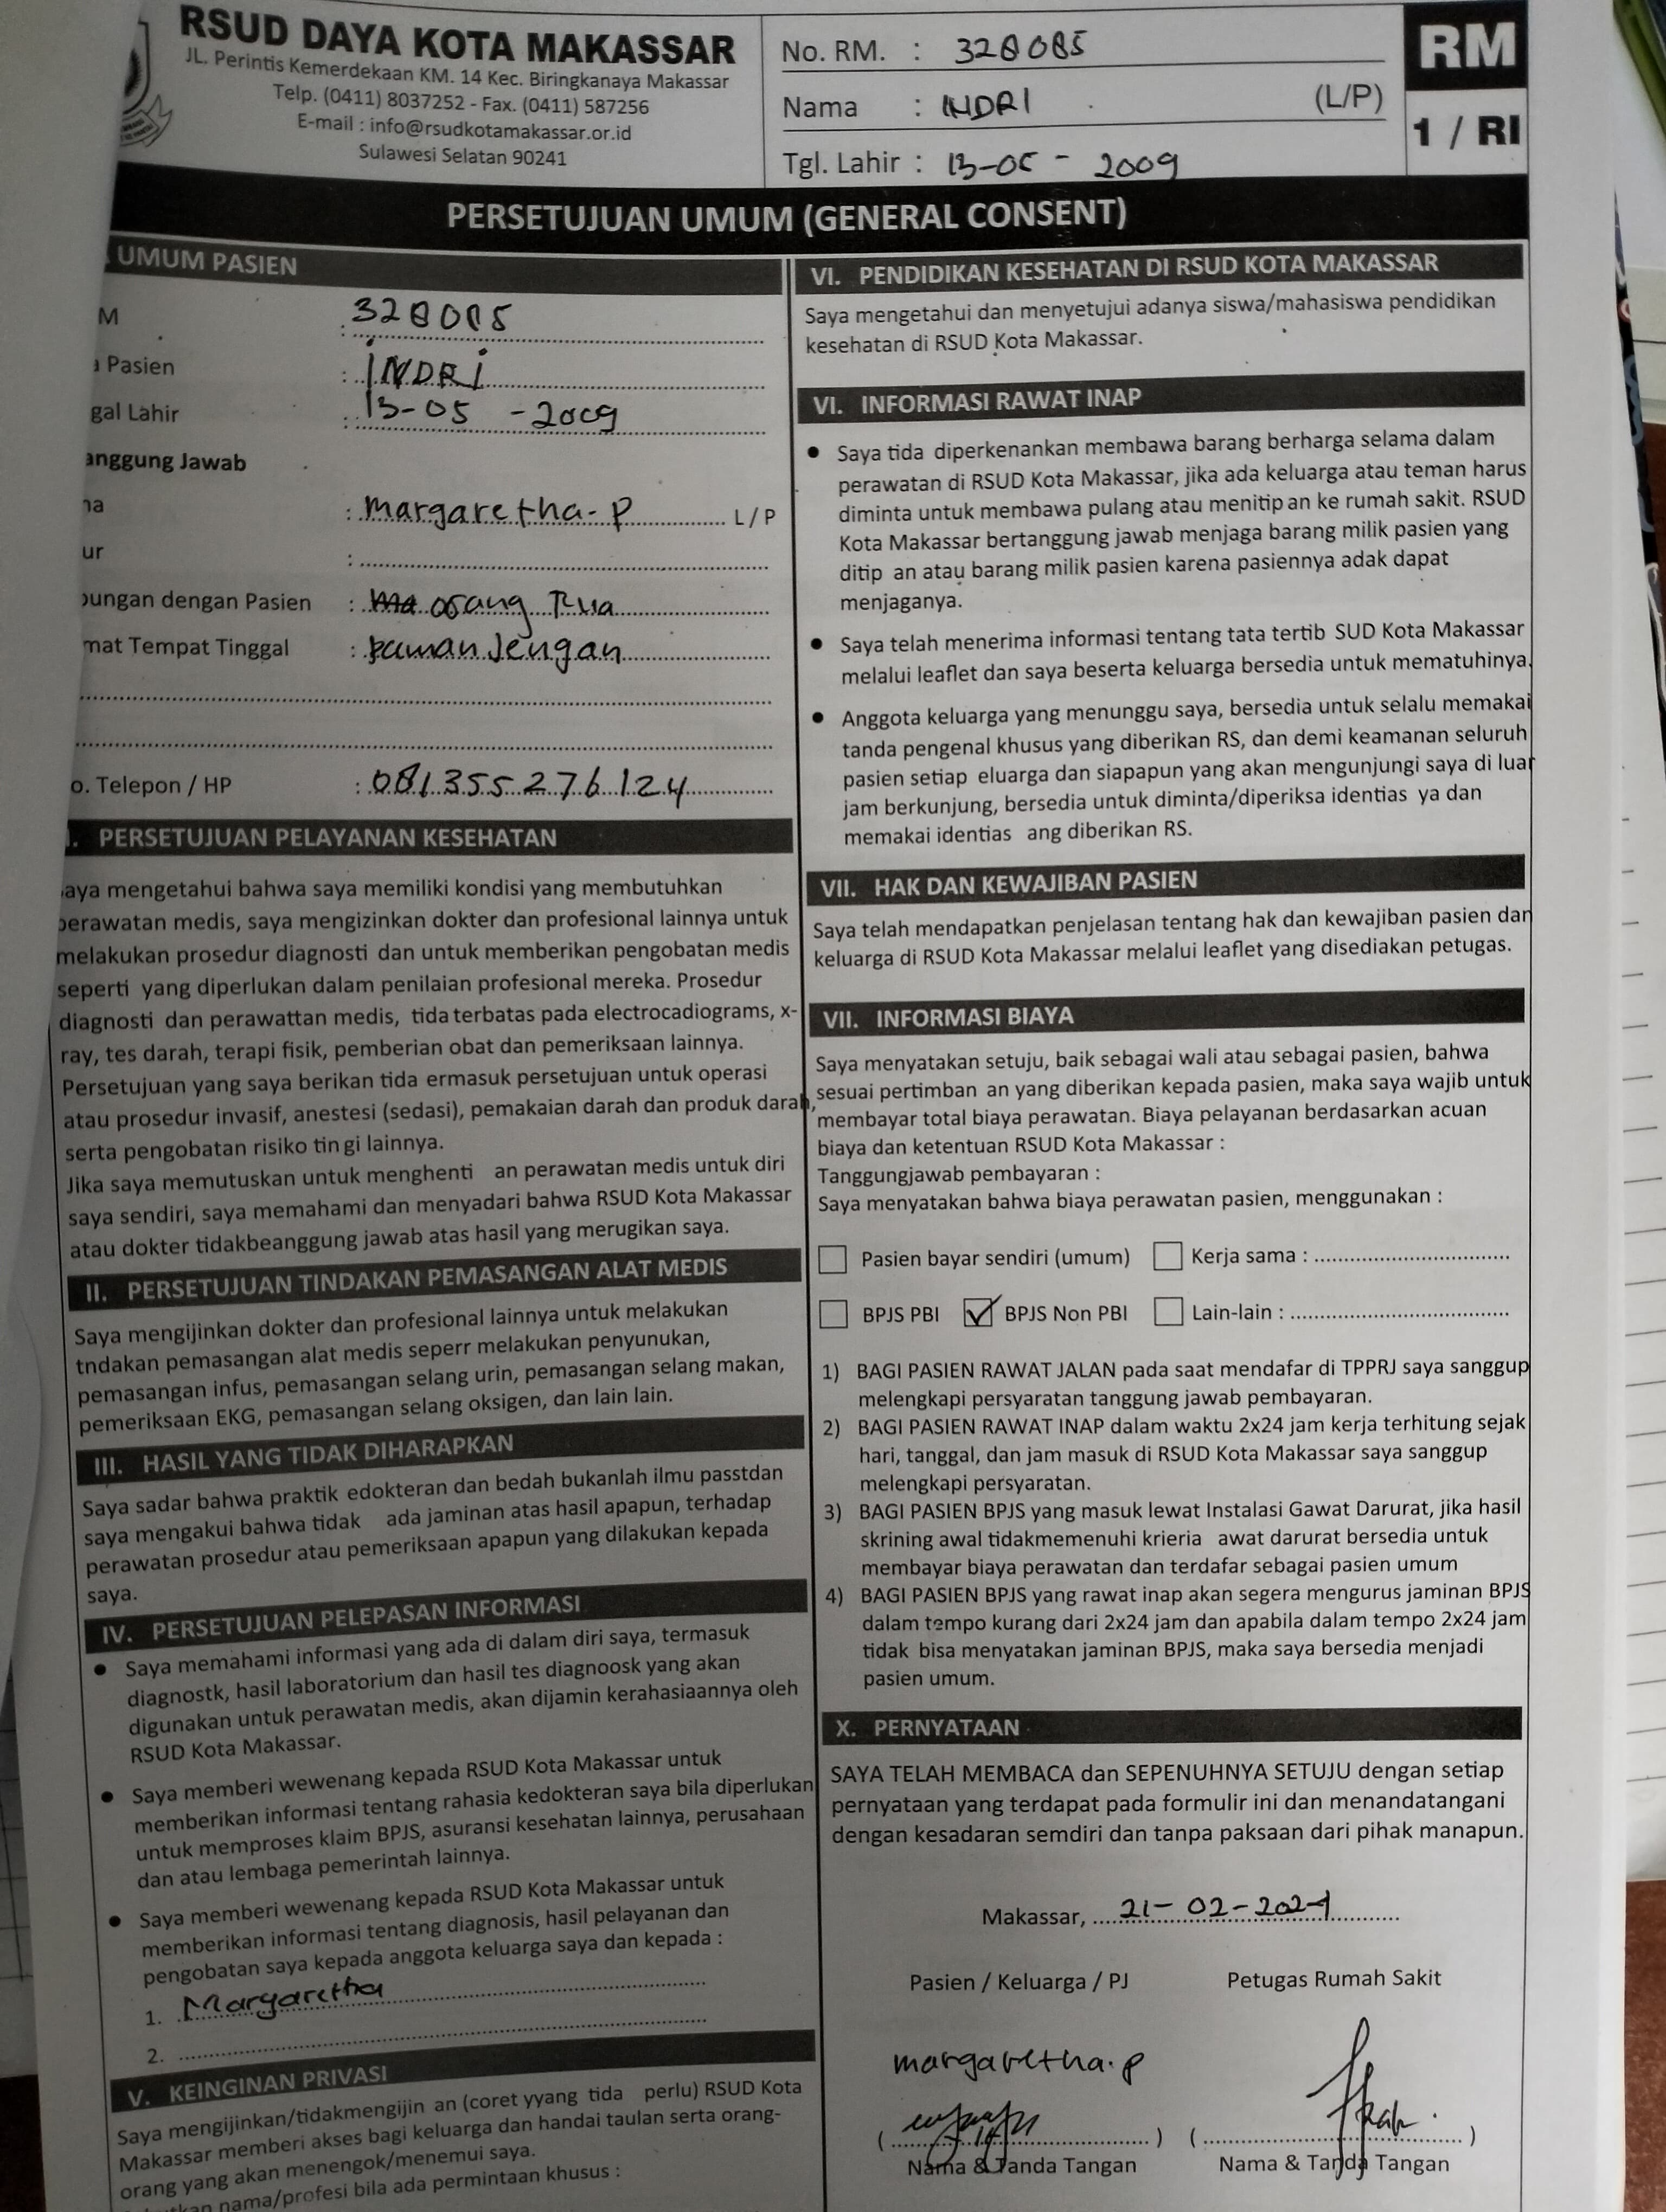 RSUD DAYA KOTA MAKASSAR
JL. Perintis Kemerdekaan KM. 14 Kec. Biringkanaya Makassar
Telp. (0411) 8037252 - Fax. (0411) 587256
E-mail : info@rsudkotamakassar.or.id
Sulawesi Selatan 90241
No. RM. : 328085
Nama : INDRI (L/P)
Tgl. Lahir : 13-05 - 2009
RM
1 / RI
PERSETUJUAN UMUM (GENERAL CONSENT)
UMUM PASIEN
M : 328085
Pasien : INDRI
gal Lahir : 13-05 - 2009
anggung Jawab
na : Margaretha-P L / P
ur :
ungan dengan Pasien : orang Tua
mat Tempat Tinggal :
o. Telepon / HP : 081355276124
. PERSETUJUAN PELAYANAN KESEHATAN
aya mengetahui bahwa saya memiliki kondisi yang membutuhkan
perawatan medis, saya mengizinkan dokter dan profesional lainnya untuk
melakukan prosedur diagnosti dan untuk memberikan pengobatan medis
seperti yang diperlukan dalam penilaian profesional mereka. Prosedur
diagnosti dan perawattan medis, tida terbatas pada electrocadiograms, x-
ray, tes darah, terapi fisik, pemberian obat dan pemeriksaan lainnya.
Persetujuan yang saya berikan tida ermasuk persetujuan untuk operasi
atau prosedur invasif, anestesi (sedasi), pemakaian darah dan produk darah,
serta pengobatan risiko tin gi lainnya.
Jika saya memutuskan untuk menghenti an perawatan medis untuk diri
saya sendiri, saya memahami dan menyadari bahwa RSUD Kota Makassar
atau dokter tidakbeanggung jawab atas hasil yang merugikan saya.
II. PERSETUJUAN TINDAKAN PEMASANGAN ALAT MEDIS
Saya mengijinkan dokter dan profesional lainnya untuk melakukan
tndakan pemasangan alat medis seperr melakukan penyunukan,
pemasangan infus, pemasangan selang urin, pemasangan selang makan,
pemeriksaan EKG, pemasangan selang oksigen, dan lain lain.
III. HASIL YANG TIDAK DIHARAPKAN
Saya sadar bahwa praktik edokteran dan bedah bukanlah ilmu passtdan
saya mengakui bahwa tidak ada jaminan atas hasil apapun, terhadap
perawatan prosedur atau pemeriksaan apapun yang dilakukan kepada
saya.
IV. PERSETUJUAN PELEPASAN INFORMASI
● Saya memahami informasi yang ada di dalam diri saya, termasuk
diagnostk, hasil laboratorium dan hasil tes diagnoosk yang akan
digunakan untuk perawatan medis, akan dijamin kerahasiaannya oleh
RSUD Kota Makassar.
● Saya memberi wewenang kepada RSUD Kota Makassar untuk
memberikan informasi tentang rahasia kedokteran saya bila diperlukan
untuk memproses klaim BPJS, asuransi kesehatan lainnya, perusahaan
dan atau lembaga pemerintah lainnya.
● Saya memberi wewenang kepada RSUD Kota Makassar untuk
memberikan informasi tentang diagnosis, hasil pelayanan dan
pengobatan saya kepada anggota keluarga saya dan kepada :
1. Margaretha
2.
V. KEINGINAN PRIVASI
Saya mengijinkan/tidakmengijin an (coret yyang tida perlu) RSUD Kota
Makassar memberi akses bagi keluarga dan handai taulan serta orang-
orang yang akan menengok/menemui saya.
kan nama/profesi bila ada permintaan khusus :
VI. PENDIDIKAN KESEHATAN DI RSUD KOTA MAKASSAR
Saya mengetahui dan menyetujui adanya siswa/mahasiswa pendidikan
kesehatan di RSUD Kota Makassar.
VI. INFORMASI RAWAT INAP
● Saya tida diperkenankan membawa barang berharga selama dalam
perawatan di RSUD Kota Makassar, jika ada keluarga atau teman harus
diminta untuk membawa pulang atau menitip an ke rumah sakit. RSUD
Kota Makassar bertanggung jawab menjaga barang milik pasien yang
ditip an atau barang milik pasien karena pasiennya adak dapat
menjaganya.
● Saya telah menerima informasi tentang tata tertib SUD Kota Makassar
melalui leaflet dan saya beserta keluarga bersedia untuk mematuhinya.
● Anggota keluarga yang menunggu saya, bersedia untuk selalu memakai
tanda pengenal khusus yang diberikan RS, dan demi keamanan seluruh
pasien setiap eluarga dan siapapun yang akan mengunjungi saya di luar
jam berkunjung, bersedia untuk diminta/diperiksa identias ya dan
memakai identias ang diberikan RS.
VII. HAK DAN KEWAJIBAN PASIEN
Saya telah mendapatkan penjelasan tentang hak dan kewajiban pasien dan
keluarga di RSUD Kota Makassar melalui leaflet yang disediakan petugas.
VII. INFORMASI BIAYA
Saya menyatakan setuju, baik sebagai wali atau sebagai pasien, bahwa
sesuai pertimban an yang diberikan kepada pasien, maka saya wajib untuk
membayar total biaya perawatan. Biaya pelayanan berdasarkan acuan
biaya dan ketentuan RSUD Kota Makassar :
Tanggungjawab pembayaran :
Saya menyatakan bahwa biaya perawatan pasien, menggunakan :
☐ Pasien bayar sendiri (umum) ☐ Kerja sama :
☐ BPJS PBI ☑ BPJS Non PBI ☐ Lain-lain :
1) BAGI PASIEN RAWAT JALAN pada saat mendafar di TPPRJ saya sanggup
melengkapi persyaratan tanggung jawab pembayaran.
2) BAGI PASIEN RAWAT INAP dalam waktu 2x24 jam kerja terhitung sejak
hari, tanggal, dan jam masuk di RSUD Kota Makassar saya sanggup
melengkapi persyaratan.
3) BAGI PASIEN BPJS yang masuk lewat Instalasi Gawat Darurat, jika hasil
skrining awal tidakmemenuhi krieria awat darurat bersedia untuk
membayar biaya perawatan dan terdafar sebagai pasien umum
4) BAGI PASIEN BPJS yang rawat inap akan segera mengurus jaminan BPJS
dalam tempo kurang dari 2x24 jam dan apabila dalam tempo 2x24 jam
tidak bisa menyatakan jaminan BPJS, maka saya bersedia menjadi
pasien umum.
X. PERNYATAAN
SAYA TELAH MEMBACA dan SEPENUHNYA SETUJU dengan setiap
pernyataan yang terdapat pada formulir ini dan menandatangani
dengan kesadaran semdiri dan tanpa paksaan dari pihak manapun.
Makassar, 21- 02-2024
Pasien / Keluarga / PJ Petugas Rumah Sakit
margaretha.p
( ) ( )
Nama & Tanda Tangan Nama & Tanda Tangan